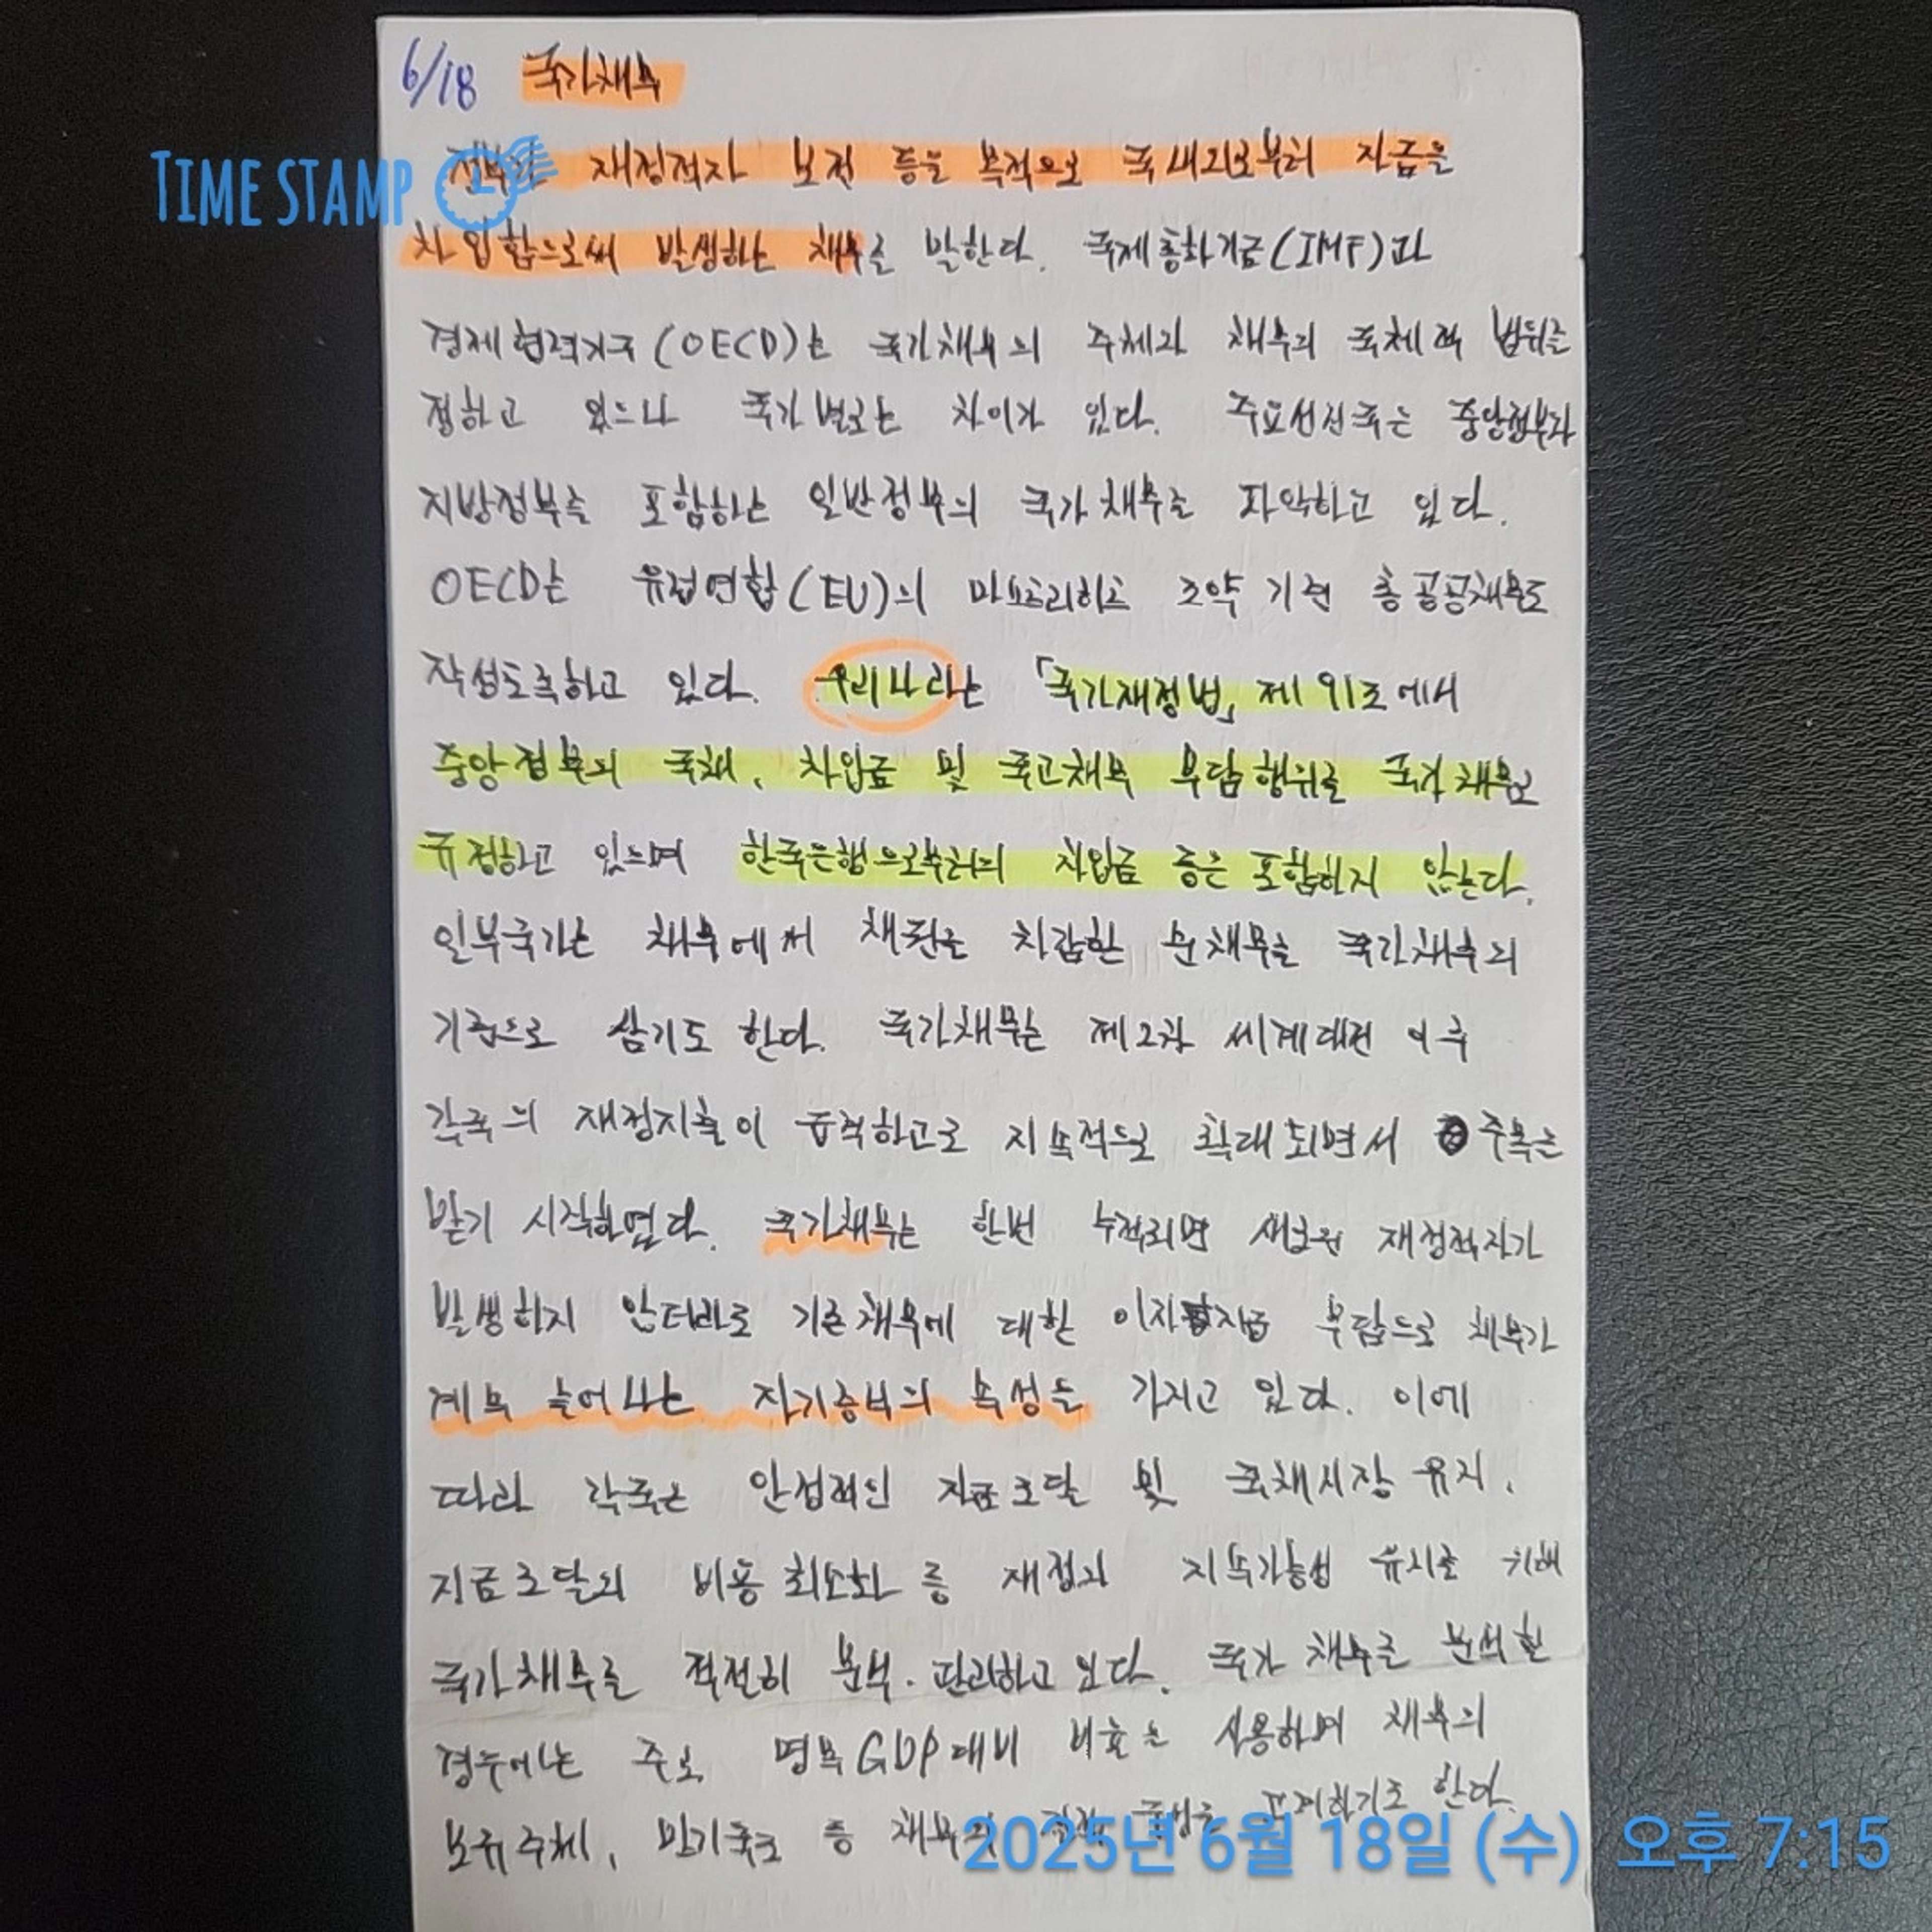 6/18 국가채무
TIME STAMP
정부가 재정적자 보전 등을 목적으로 국내외로부터 자금을
차입함으로써 발생하는 채무를 말한다. 국제통화기금(IMF)과
경제협력기구(OECD)는 국가채무의 주체와 채무의 구체적 범위를
정하고 있으나 국가별로는 차이가 있다. 주요선진국은 중앙정부과
지방정부를 포함하는 일반정부의 국가채무를 파악하고 있다.
OECD는 유럽연합(EU)의 마스트리히트 조약 기준 총공공채무도
작성토록하고 있다. 우리나라는 「국가재정법」 제91조에서
중앙정부의 국채, 차입금 및 국고채무 부담행위를 국가채무로
규정하고 있으며 한국은행으로부터의 차입금 등은 포함하지 않는다.
일부국가는 채무에서 채권을 차감한 순채무를 국가채무의
기준으로 삼기도 한다. 국가채무는 제2차 세계대전 이후
각국의 재정지출이 급격하고로 지속적으로 확대되면서 주목을
받기 시작하였다. 국가채무는 한번 누적되면 새로운 재정적자가
발생하지 않더라도 기존채무에 대한 이자지급 부담으로 채무가
계속 늘어나는 자기증식의 속성을 가지고 있다. 이에
따라 각국은 안정적인 자금조달 및 국채시장 유지,
자금조달의 비용 최소화 등 재정의 지속가능성 유지를 위해
국가채무를 적절히 분석·관리하고 있다. 국가 채무를 분석할
경우에는 주로 명목GDP대비 비율을 사용하며 채무의
보유주체, 만기구조 등 채무의 한다.
2025년 6월 18일 (수) 오후 7:15